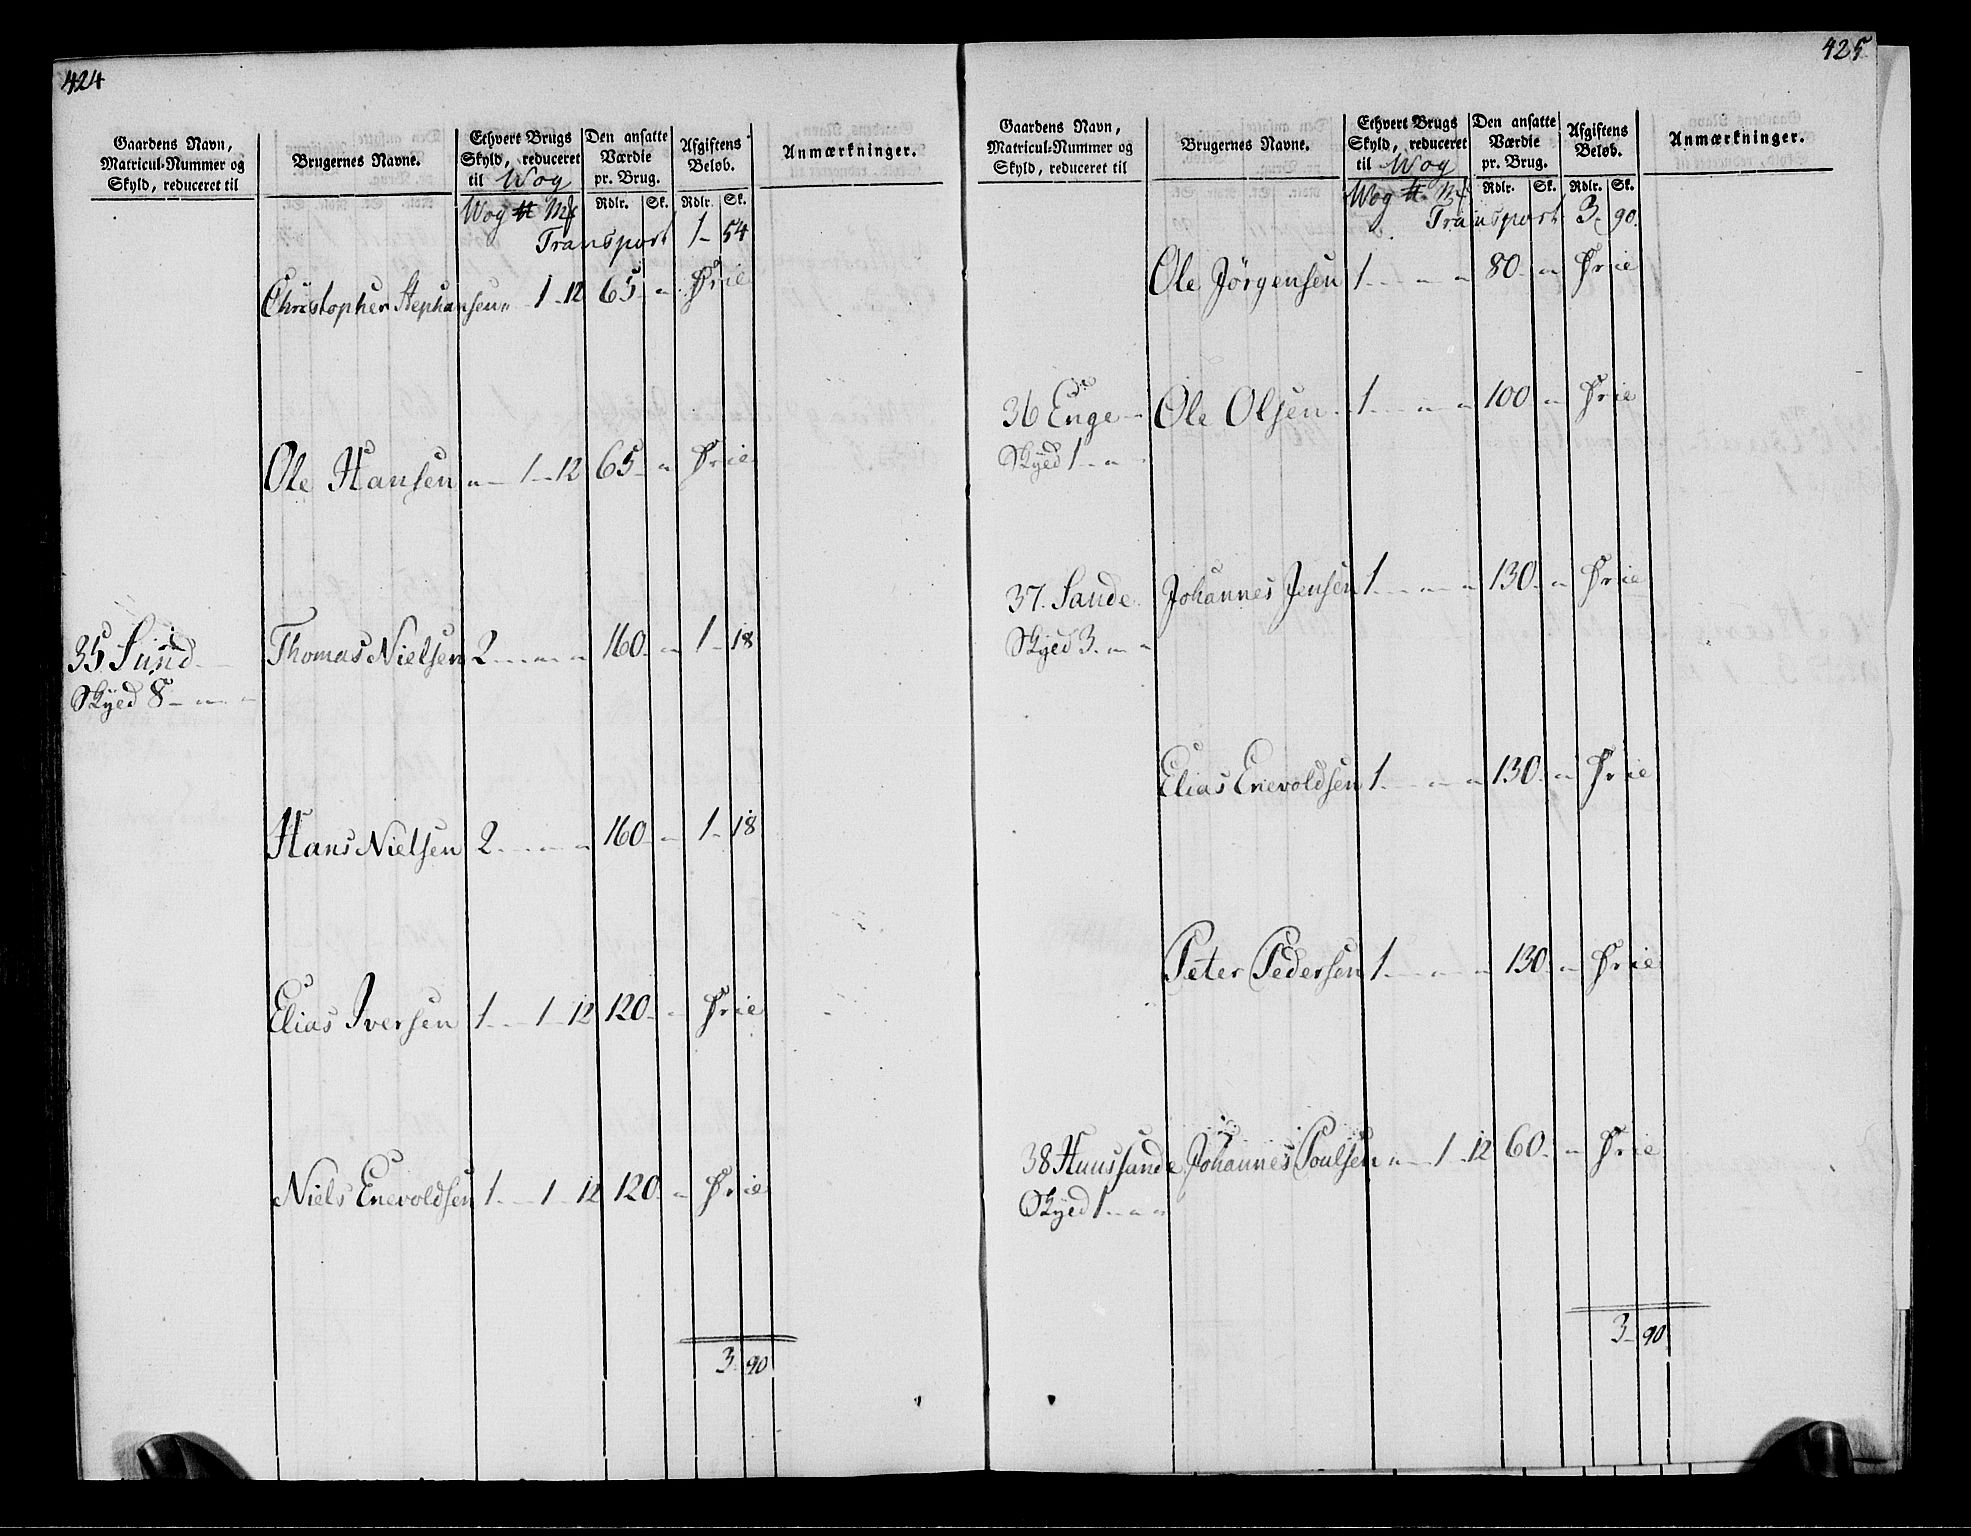 424
Gaardens Navn, Matricul-Nummer og Skyld, reduceret til | Brugernes Navne. | Ethvert Brugs Skyld, reduceret til Wog | Den ansatte Værdie pr. Brug. | Afgiftens Beløb. | Anmærkninger.
Wog ℔ Mk | Rdlr. Sk. | Rdlr. Sk.
Transport 1 - 54
Christopher Stephansen " - 1 - 12 65 - " Frie
Ole Hansen " - 1 - 12 65 - " Frie
35 Sund - Thomas Nielsen 2 - " - " 160 - " 1 - 18
Skyed 8 - " - "
Hans Nielsen 2 - " - " 160 - " 1 - 18
Elias Iversen 1 - 1 - 12 120 - " Frie
Niels Enevoldsen 1 - 1 - 12 120 - " Frie
3 - 90
425
Gaardens Navn, Matricul-Nummer og Skyld, reduceret til | Brugernes Navne. | Ethvert Brugs Skyld, reduceret til Wog | Den ansatte Værdie pr. Brug. | Afgiftens Beløb. | Anmærkninger.
Wog ℔ Mk | Rdlr. Sk. | Rdlr. Sk.
Transport 3 - 90
Ole Jörgensen 1 - " - " 80 - " Frie
36 Enge - Ole Olsen 1 - " - " 100 - " Frie
Skyed 1 - " - "
37. Sande Johannes Jensen 1 - " - " 130 - " Frie
Skyed 3 - " - "
Elias Enevoldsen 1 - " - " 130 - " Frie
Peter Pedersen 1 - " - " 130 - " Frie
38 Huussande Johannes Poulsen " - 1 - 12 60 - " Frie
Skyed 1 - " - "
3 - 90